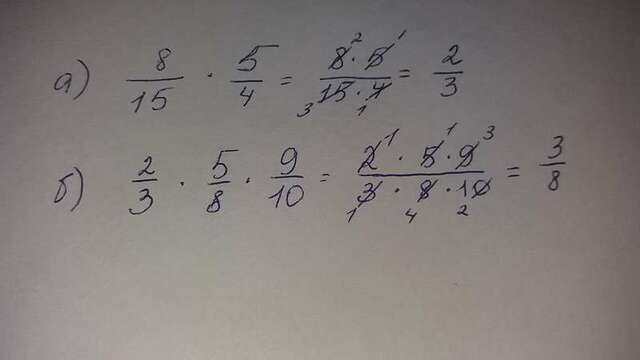 а) 8/15 · 5/4 = 8² · 5¹ / ₃15 · 4₁ = 2/3
б) 2/3 · 5/8 · 9/10 = 2¹ · 5¹ · 9³ / ₁3 · 8₄ · 10₂ = 3/8